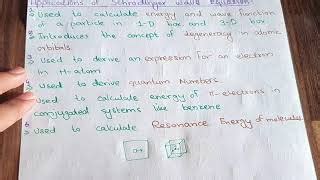 Applications of Schrodinger Wave Equation
Used to calculate energy and wave function
of a particle in 1-D box and 3-D box
Introduces the concept of degeneracy in atomic
orbitals.
3 Used to derive an expression for an electron
in H-atom
Used to derive quantum Numbers.
Used to calculate energy of π-electrons in
conjugated systems like benzene
6 Used to calculate Resonance Energy of molecules